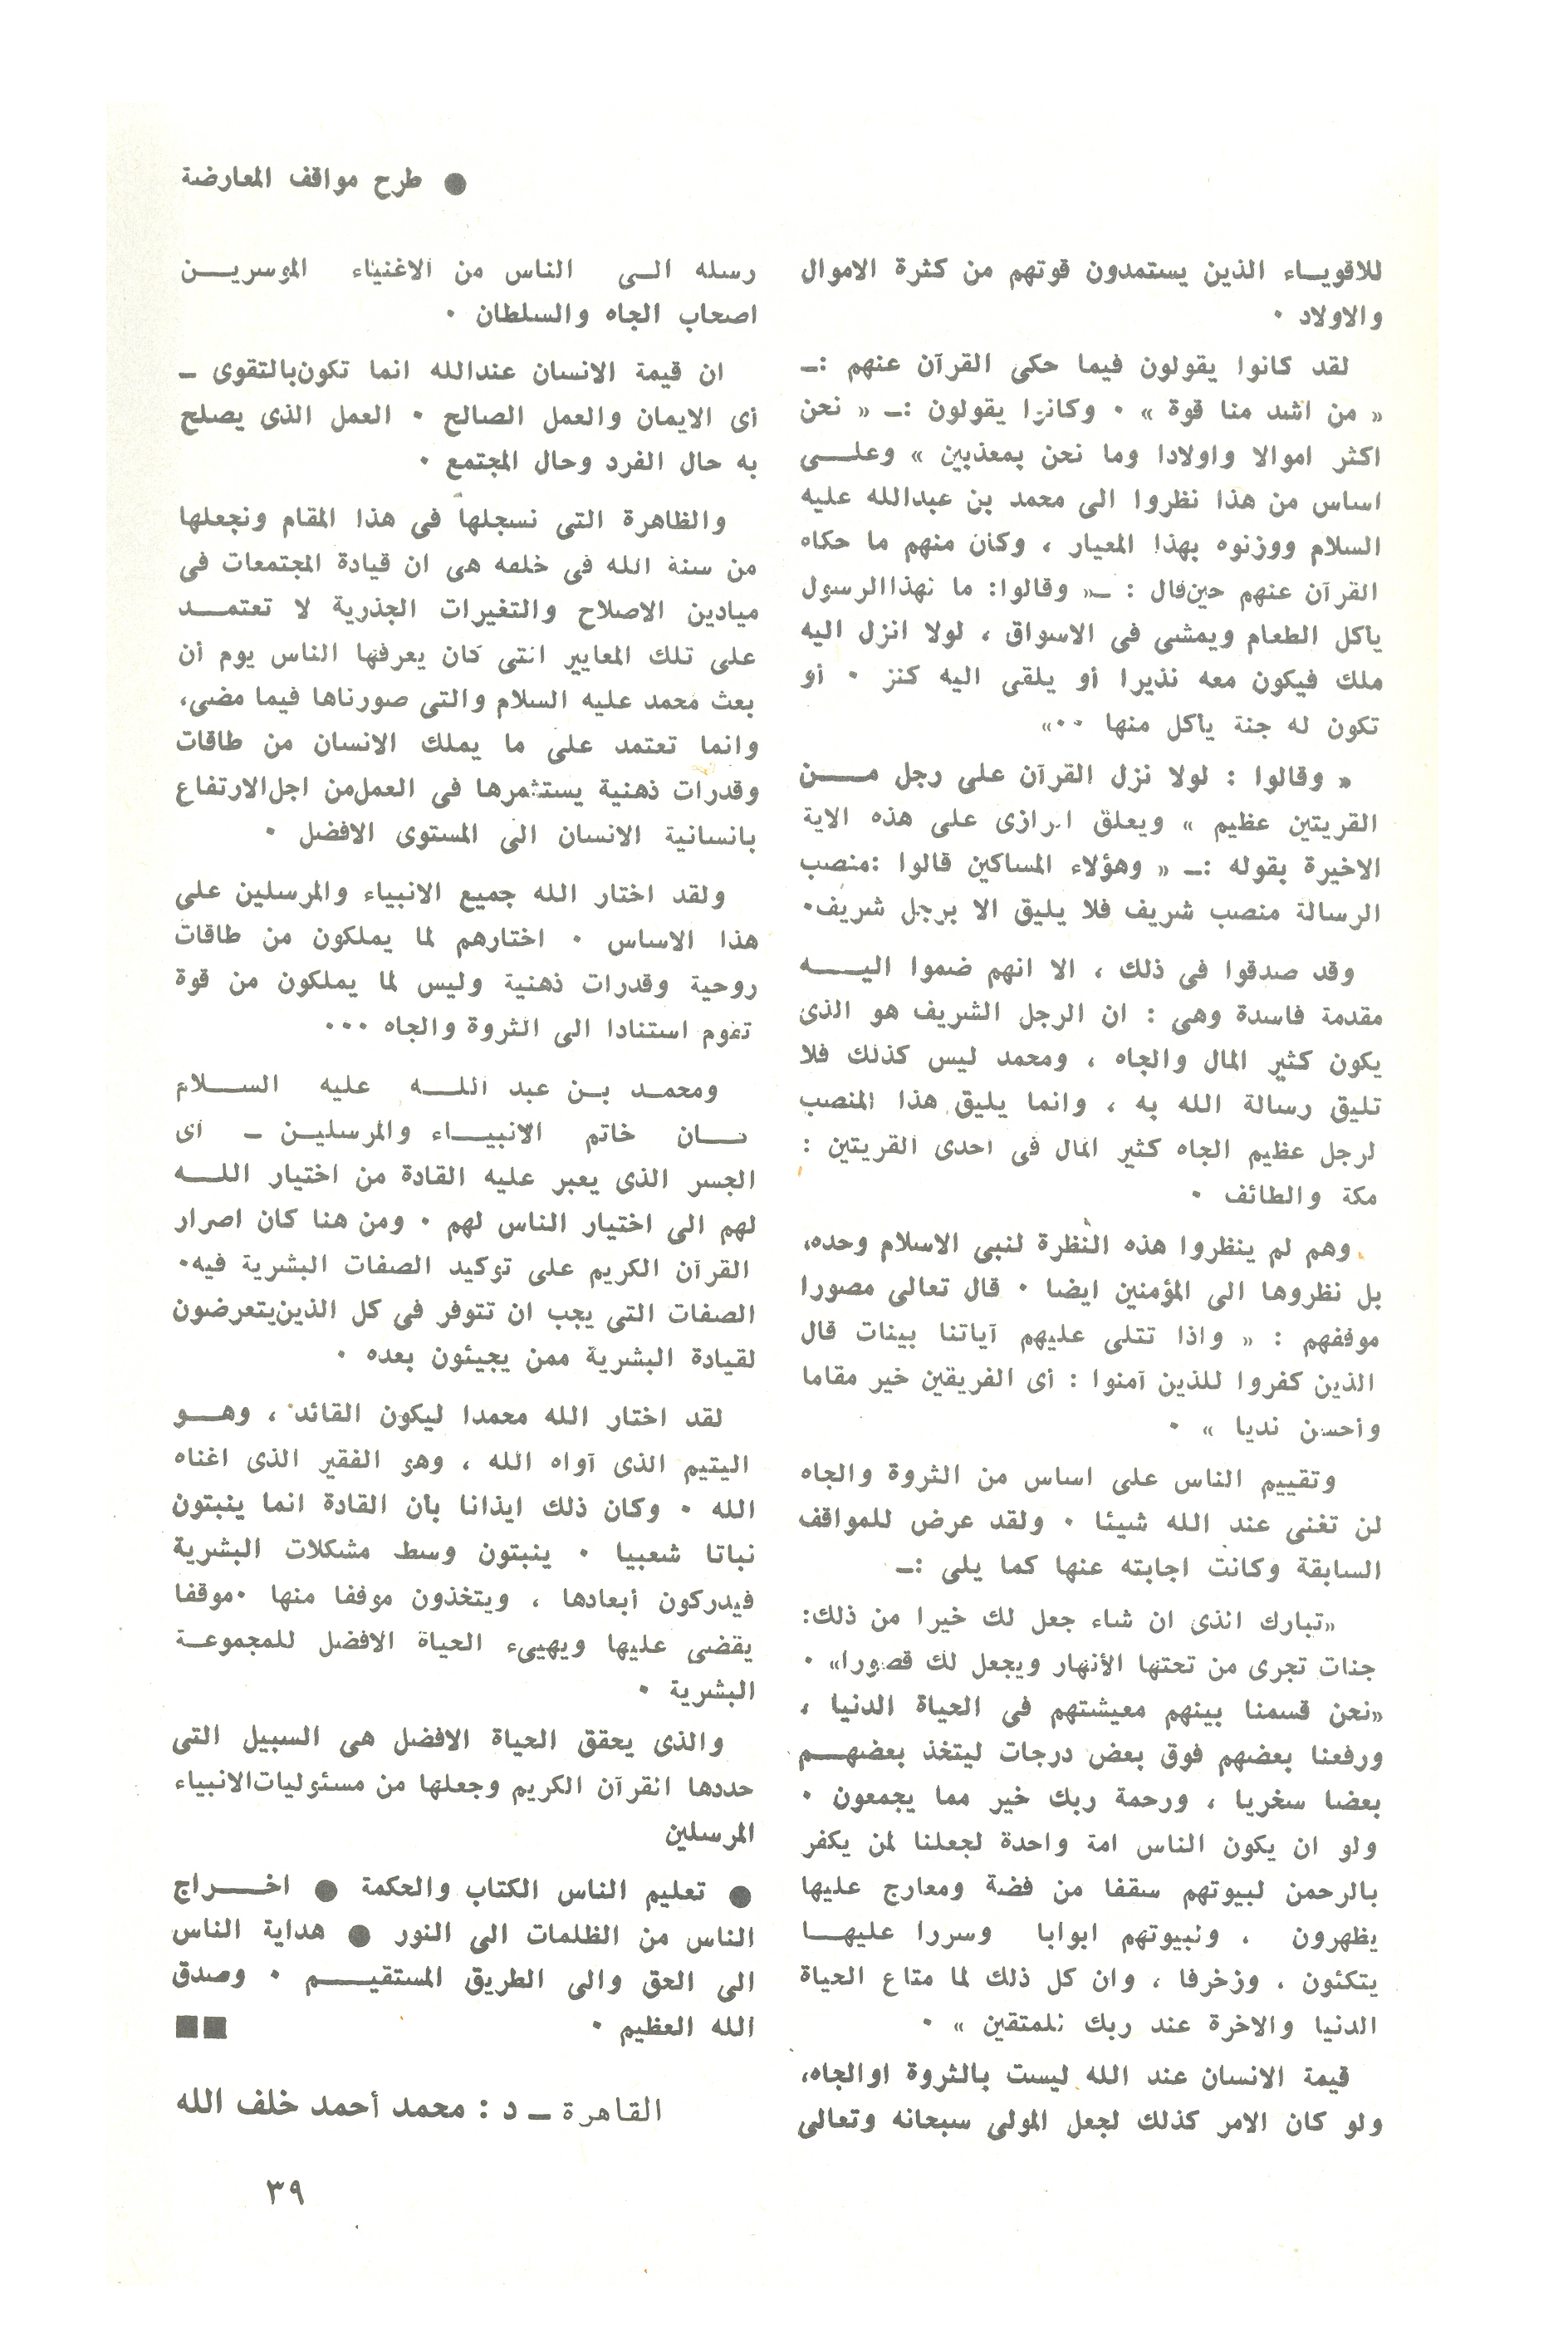 ● طرح مواقف المعارضة
للاقويـاء الذين يستمدون قوتهم من كثرة الاموال
والاولاد ٠
لقد كانوا يقولون فيما حكى القرآن عنهم :ـ
« من اشد منا قوة » ٠ وكانوا يقولون :ـ « نحن
اكثر اموالا واولادا وما نحن بمعذبين » وعلـــى
اساس من هذا نظروا الى محمد بن عبدالله عليه
السلام ووزنوه بهذا المعيار ، وكان منهم ما حكاه
القرآن عنهم حين قال : ـ« وقالوا: ما لهذا الرسول
يأكل الطعام ويمشى فى الاسواق ، لولا انزل اليه
ملك فيكون معه نذيرا أو يلقى اليه كنز ٠ أو
تكون له جنة يأكل منها ٠٠»
« وقالوا : لولا نزل القرآن على رجل مـــن
القريتين عظيم » ويعلق الرازى على هذه الاية
الاخيرة بقوله :ـ « وهؤلاء المساكين قالوا :منصب
الرسالة منصب شريف فلا يليق الا برجل شريف٠
وقد صدقوا فى ذلك ، الا انهم ضموا اليـــه
مقدمة فاسدة وهى : ان الرجل الشريف هو الذى
يكون كثير المال والجاه ، ومحمد ليس كذلك فلا
تليق رسالة الله به ، وانما يليق هذا المنصب
لرجل عظيم الجاه كثير المال فى احدى القريتين :
مكة والطائف ٠
وهم لم ينظروا هذه النظرة لنبى الاسلام وحده،
بل نظروها الى المؤمنين ايضا ٠ قال تعالى مصورا
موقفهم : « واذا تتلى عليهم آياتنا بينات قال
الذين كفروا للذين آمنوا : أى الفريقين خير مقاما
وأحسن نديا » ٠
وتقييم الناس على اساس من الثروة والجاه
لن تغنى عند الله شيئا ٠ ولقد عرض للمواقف
السابقة وكانت اجابته عنها كما يلى :ـ
«تبارك الذى ان شاء جعل لك خيرا من ذلك:
جنات تجرى من تحتها الأنهار ويجعل لك قصورا» ٠
«نحن قسمنا بينهم معيشتهم فى الحياة الدنيا ،
ورفعنا بعضهم فوق بعض درجات ليتخذ بعضهـــم
بعضا سخريا ، ورحمة ربك خير مما يجمعون ٠
ولو ان يكون الناس امة واحدة لجعلنا لمن يكفر
بالرحمن لبيوتهم سقفا من فضة ومعارج عليها
يظهرون ، ولبيوتهم ابوابا وسررا عليهـــا
يتكئون ، وزخرفا ، وان كل ذلك لما متاع الحياة
الدنيا والاخرة عند ربك للمتقين » ٠
قيمة الانسان عند الله ليست بالثروة اوالجاه،
ولو كان الامر كذلك لجعل المولى سبحانه وتعالى
رسله الـى الناس من الاغنياء الموسريـــن
اصحاب الجاه والسلطان ٠
ان قيمة الانسان عندالله انما تكون بالتقوى ـ
أى الايمان والعمل الصالح ٠ العمل الذى يصلح
به حال الفرد وحال المجتمع ٠
والظاهرة التى نسجلها فى هذا المقام ونجعلها
من سنة الله فى خلقه هى ان قيادة المجتمعات فى
ميادين الاصلاح والتغيرات الجذرية لا تعتمـــد
على تلك المعايير التى كان يعرفها الناس يوم أن
بعث محمد عليه السلام والتى صورناها فيما مضى،
وانما تعتمد على ما يملك الانسان من طاقات
وقدرات ذهنية يستثمرها فى العمل من اجل الارتفاع
بانسانية الانسان الى المستوى الافضل ٠
ولقد اختار الله جميع الانبياء والمرسلين على
هذا الاساس ٠ اختارهم لما يملكون من طاقات
روحية وقدرات ذهنية وليس لما يملكون من قوة
تقوم استنادا الى الثروة والجاه ٠٠٠
ومحمـد بـن عبد اللــه عليه الســلام
كـــان خاتم الانبيـــاء والمرسليــن ـ أى
الجسر الذى يعبر عليه القادة من اختيار اللـــه
لهم الى اختيار الناس لهم ٠ ومن هنا كان اصرار
القرآن الكريم على توكيد الصفات البشرية فيه٠
الصفات التى يجب ان تتوفر فى كل الذين يتعرضون
لقيادة البشرية ممن يجيئون بعده ٠
لقد اختار الله محمدا ليكون القائد ، وهـــو
اليتيم الذى آواه الله ، وهو الفقير الذى اغناه
الله ٠ وكان ذلك ايذانا بأن القادة انما ينبتون
نباتا شعبيا ٠ ينبتون وسط مشكلات البشرية
فيدركون أبعادها ، ويتخذون موقفا منها ٠موقفا
يقضى عليها ويهيىء الحياة الافضل للمجموعــة
البشرية ٠
والذى يحقق الحياة الافضل هى السبيل التى
حددها القرآن الكريم وجعلها من مسئوليات الانبياء
المرسلين
● تعليم الناس الكتاب والحكمة ● اخـــراج
الناس من الظلمات الى النور ● هداية الناس
الى الحق والى الطريق المستقيـــم ٠ وصدق
الله العظيم ٠ ■■
القاهرة ـ د : محمد أحمد خلف الله
٣٩